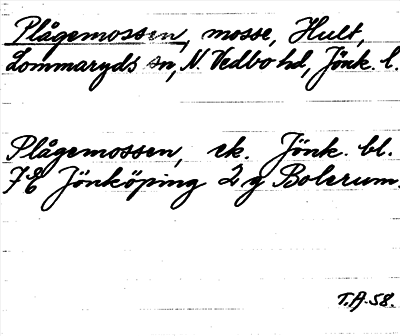 Plågemossen, mosse, Hult,
Lommaryds sn, N. Vedbo hd, Jönk. l.
Plågemossen, ek. Jönk. bl.
7E Jönköping 2 g Bolerum.
T.A. 58.